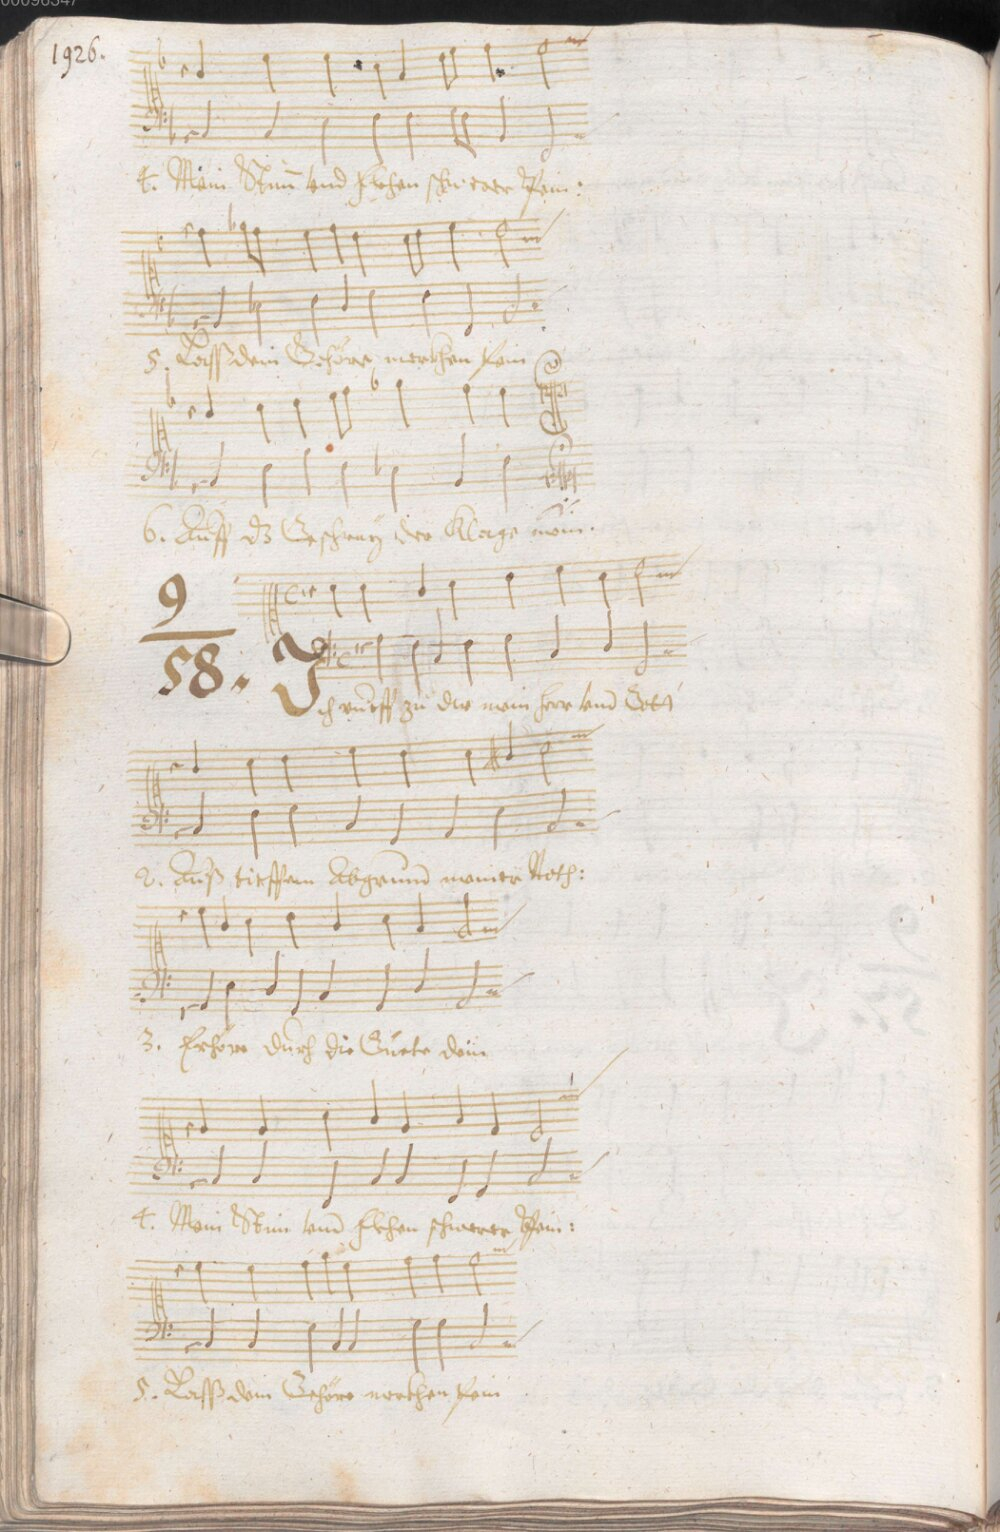 00096347
1926.
4. Mein Stim̄ vnd flehen schwerer Pein:
5. Lasß dein Gehöre merkhen fein
6. Auff dz Geschrey der Klage mein.
9
58. Ich rueff zu dir mein Herr vnd Gott
2. Auß tieffem Abgrund meiner Noth:
3. Erhöre durch die Guete dein
4. Mein Stim vnd flehen schwerer Pein:
5. Lasß dein Gehöre merkhen fein